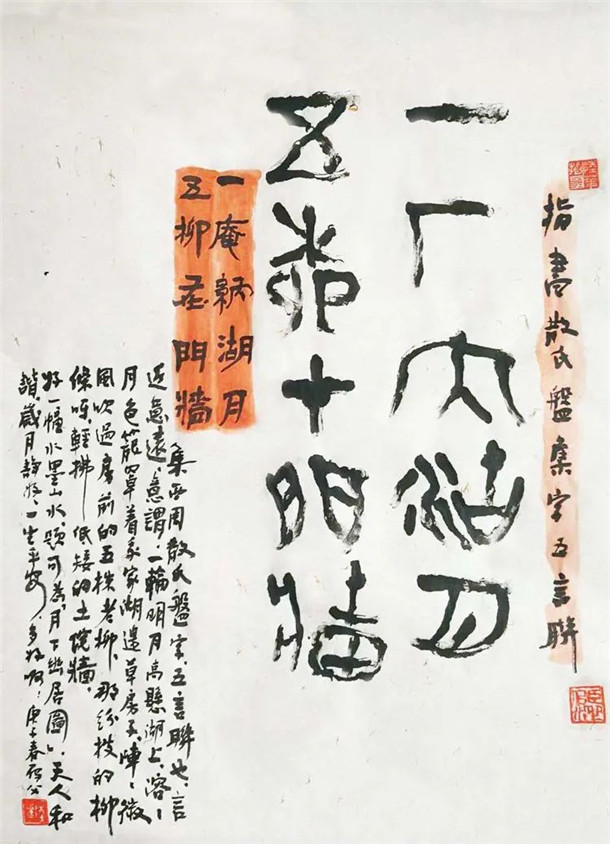 指書散氏盤集字五言聯
一厂內湖月
五柳十門牆
一庵納湖月
五柳在門牆
集西周散氏盤字，五言聯也，言
近意遠，意謂：一輪明月高懸湖上，溶〻
月色籠罩着我家湖邊草房子，陣〻微
風吹過房前的五株老柳，那紛披的柳
條呀，輕拂低矮的土院牆。
好一幅水墨山水，題可為「月下幽居圖」，天人和
諧，歲月靜好，一生平安，多好啊！庚子春石公